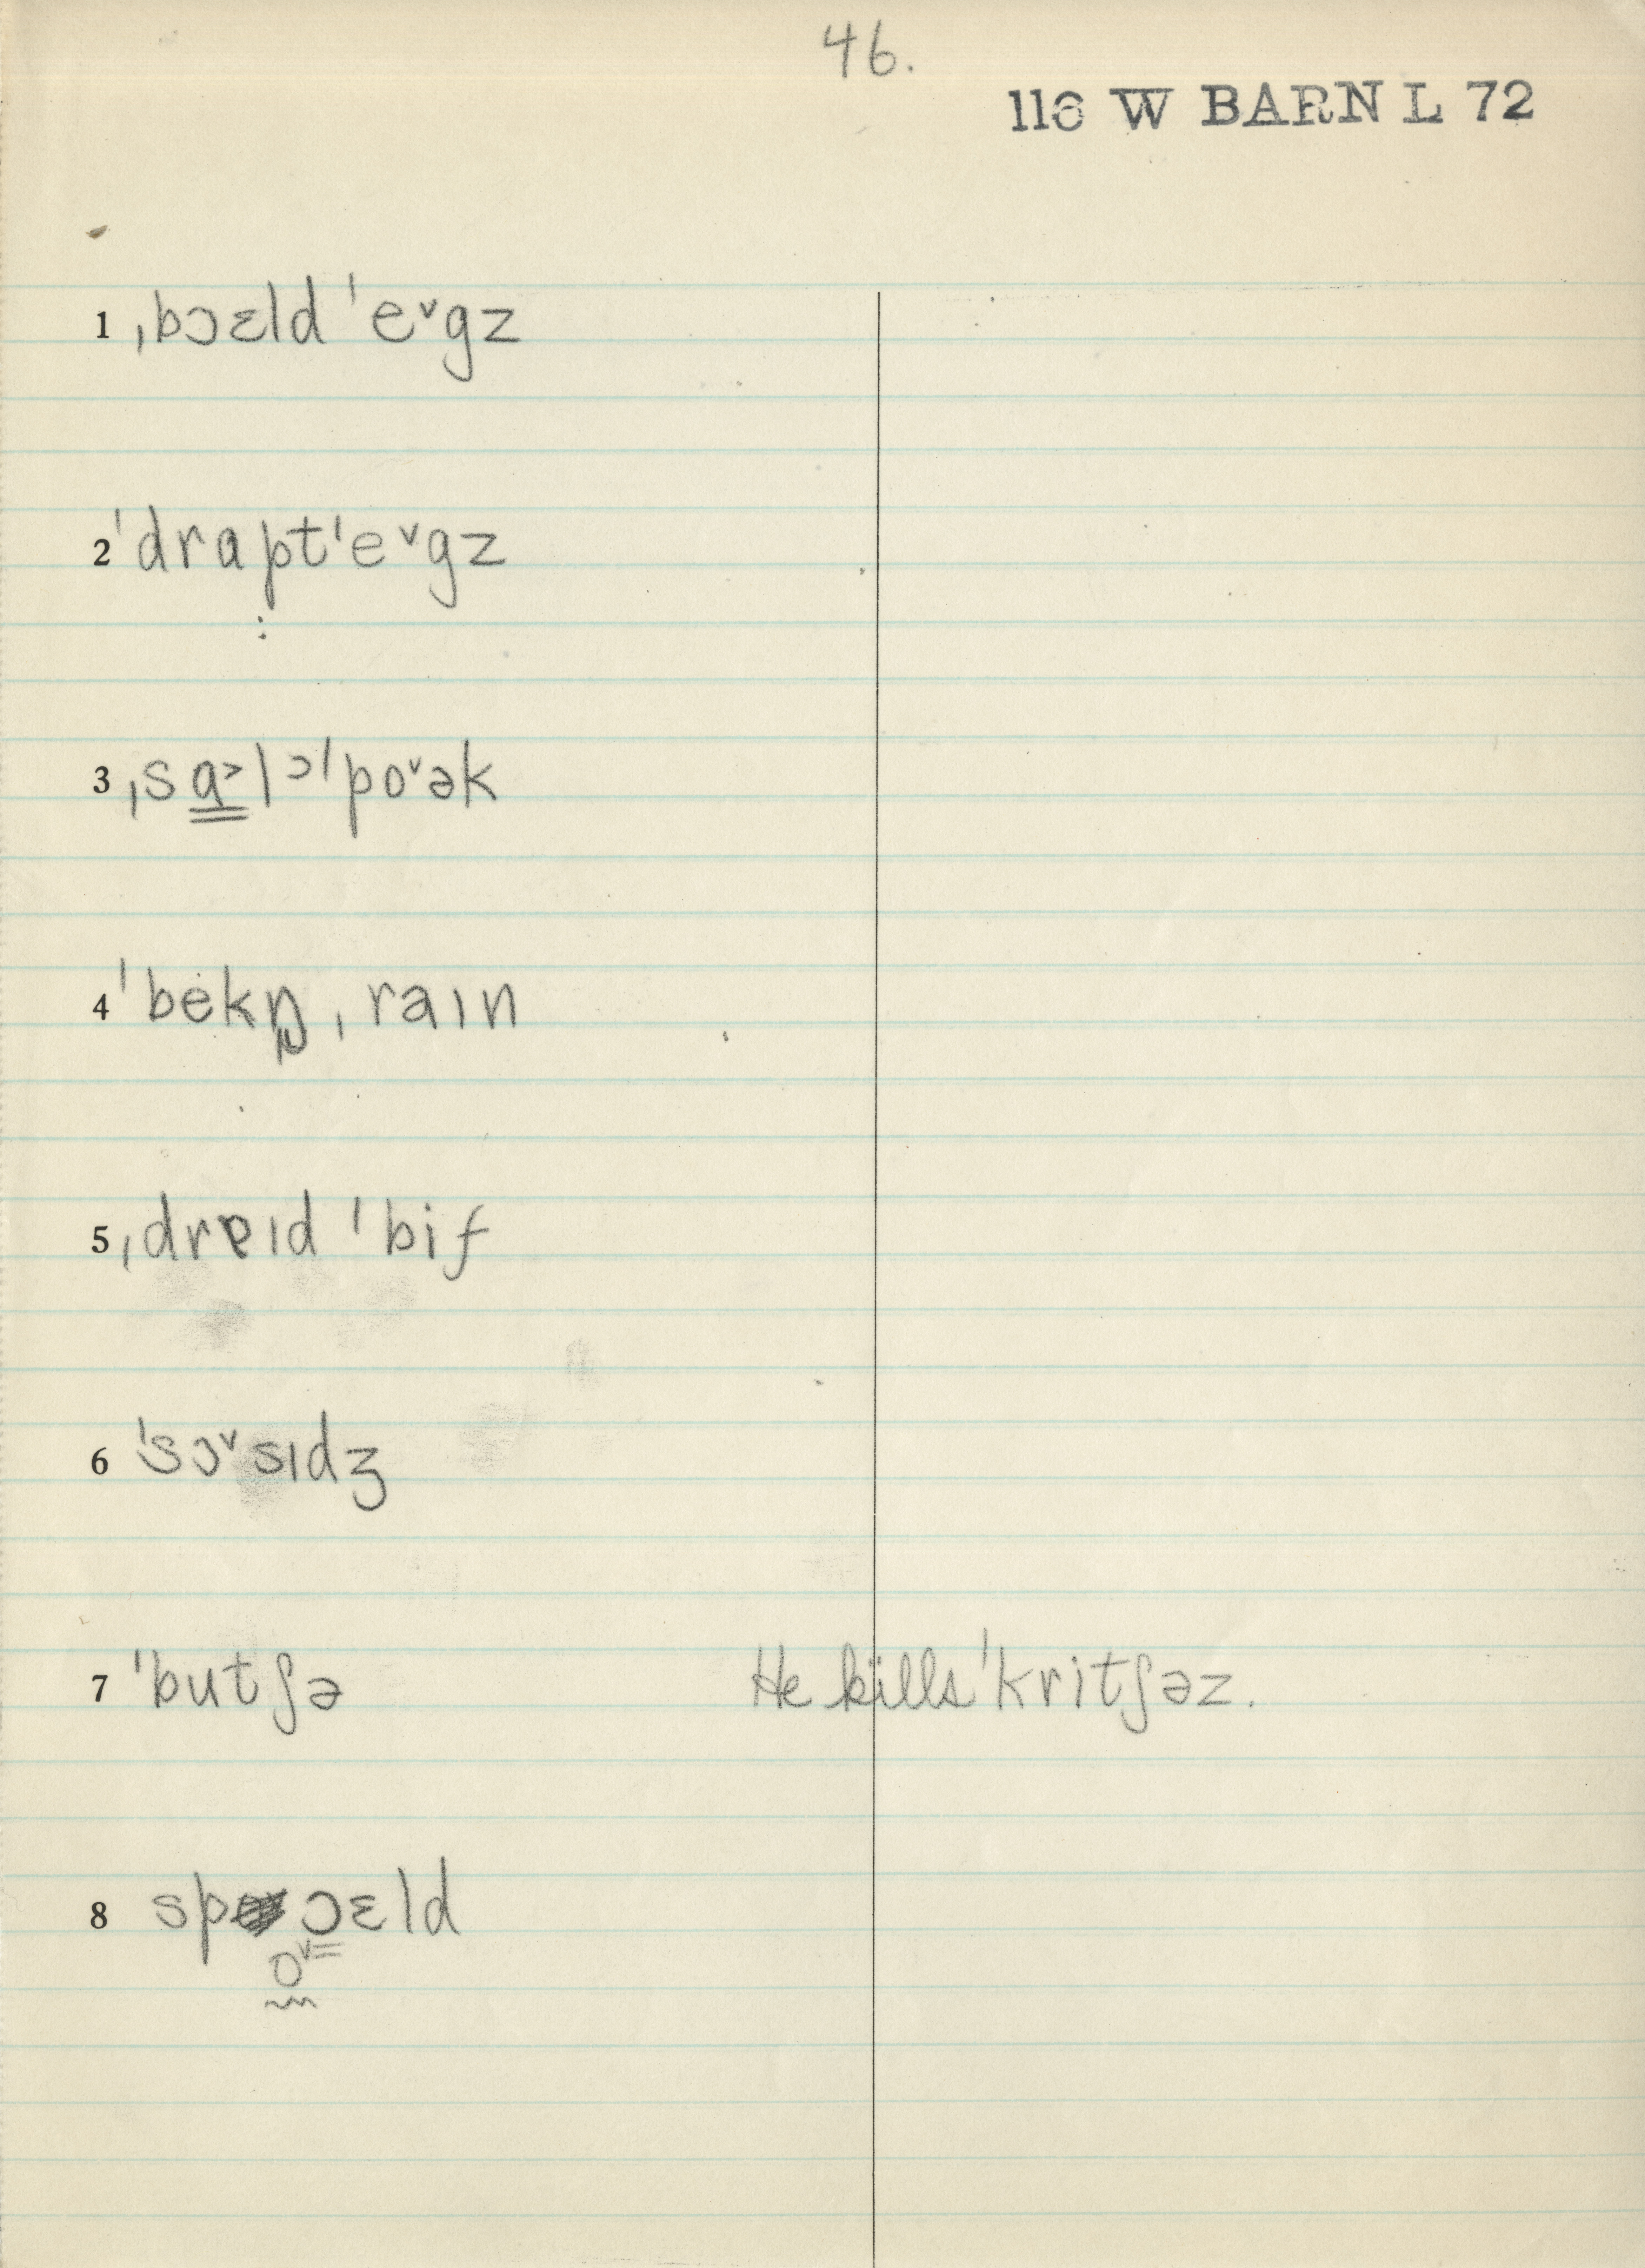 46.
116 W BARN L 72
1 ˌbɔɛld ˈe˅gz
2 ˈdrɑptˈe˅gz
:
3 ˌsɑ̳˃lᵓˈpo˅ək
4 ˈbėkŋ̍ ˌraɪn
5 ˌdrɐɪd ˈbif
6 ˈsɔ˅sɪdʒ
7 ˈbutʃə He kills ˈkritʃəz.
8 spɔɛld
o˅